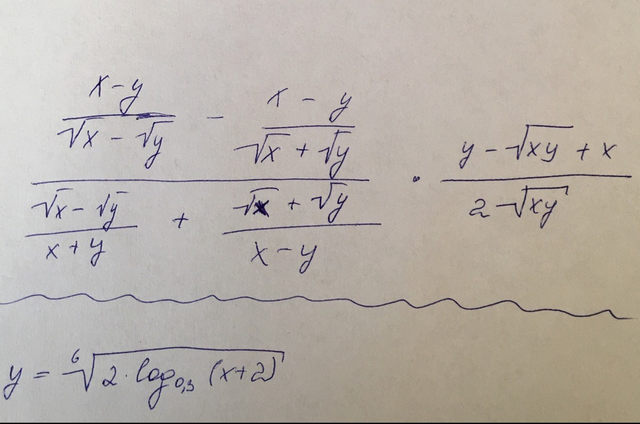 \frac{\frac{x-y}{\sqrt{x}-\sqrt{y}} - \frac{x-y}{\sqrt{x}+\sqrt{y}}}{\frac{\sqrt{x}-\sqrt{y}}{x+y} + \frac{\sqrt{x}+\sqrt{y}}{x-y}} \cdot \frac{y-\sqrt{xy}+x}{2\sqrt{xy}}
y = \sqrt[6]{2 \cdot log_{0,3}(x+2)}